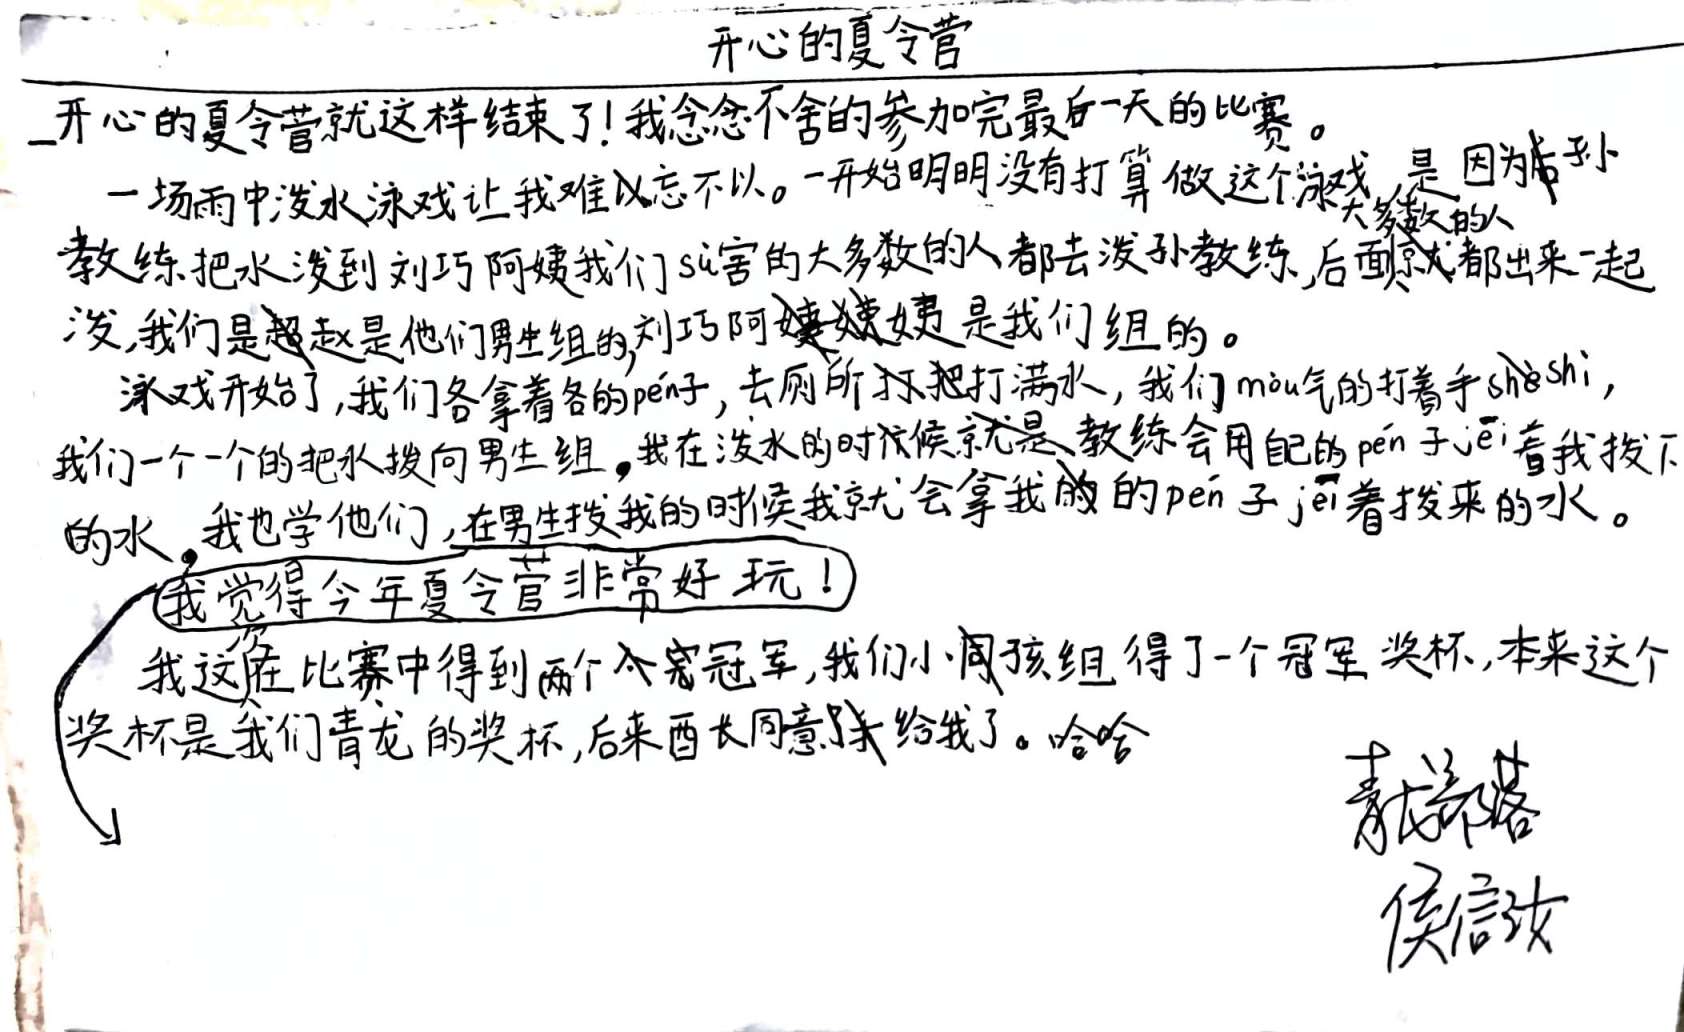 开心的夏令营
开心的夏令营就这样结束了！我念念不舍的参加完最后一天的比赛。
一场雨中泼水泳戏让我难以忘不以。一开始明明没有打算做这个泳戏，是因为孙
大多数的人
教练把水泼到刘巧阿姨我们sù害的大多数的人都去泼孙教练，后面就都出来一起
泼，我们是赵是他们男生组的，刘巧阿姨是我们组的。
泳戏开始了，我们各拿着各的pén子，去厕所把打满水，我们mòu气的打着手shì，
我们一个一个的把水拨向男生组。我在泼水的时候就是教练会用自己的pén子jēi着我拨下
的水。我也学他们，在男生拨我的时候我就会拿我的pén子jēi着拨来的水。
我觉得今年夏令营非常好玩！
我这次在比赛中得到两个冠军，我们小孩组得了一个冠军奖杯，本来这个
奖杯是我们青龙的奖杯，后来酉长同意给我了。哈哈
青龙部落
侯信汝